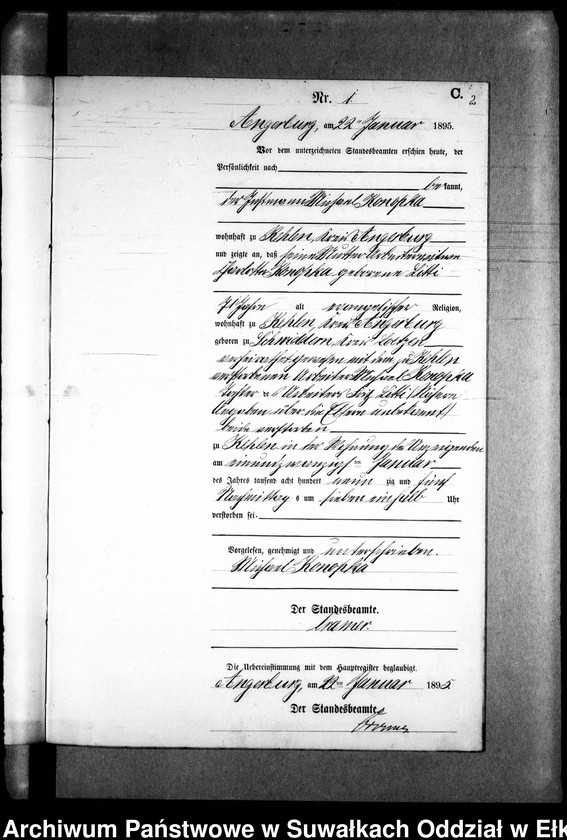 C.
2
Nr. 1
Angerburg, am 22ten Januar 1895.
Vor dem unterzeichneten Standesbeamten erschien heute, der
Persönlichkeit nach
bekannt,
der Instmann Michael Konopka
wohnhaft zu Kehlen, Kreis Angerburg
und zeigte an, daß seine Mutter Arbeiterwittwe
Charlotte Konopka geborene Litti
71 Jahre alt evangelischer Religion,
wohnhaft zu Kehlen Kreis Angerburg
geboren zu Schwiddern, Kreis Loetzen
verheirathet gewesen mit dem zu Kehlen
verstorbenen Arbeiter Michael Konopka
Tochter des Arbeiters Litti (Nähere
Angaben über die Eltern unbekannt)
beide verstorben
zu Kehlen in der Wohnung des Anzeigenden
am einundzwanzigsten Januar
des Jahres tausend acht hundert neunzig und fünf
Nachmittags um sieben einhalb Uhr
verstorben sei.
Vorgelesen, genehmigt und unterschrieben.
Michael Konopka
Der Standesbeamte.
Cramer.
Die Uebereinstimmung mit dem Hauptregister beglaubigt.
Angerburg, am 22ten Januar 1895.
Der Standesbeamte
Cramer
Archiwum Państwowe w Suwałkach Oddział w Ełk